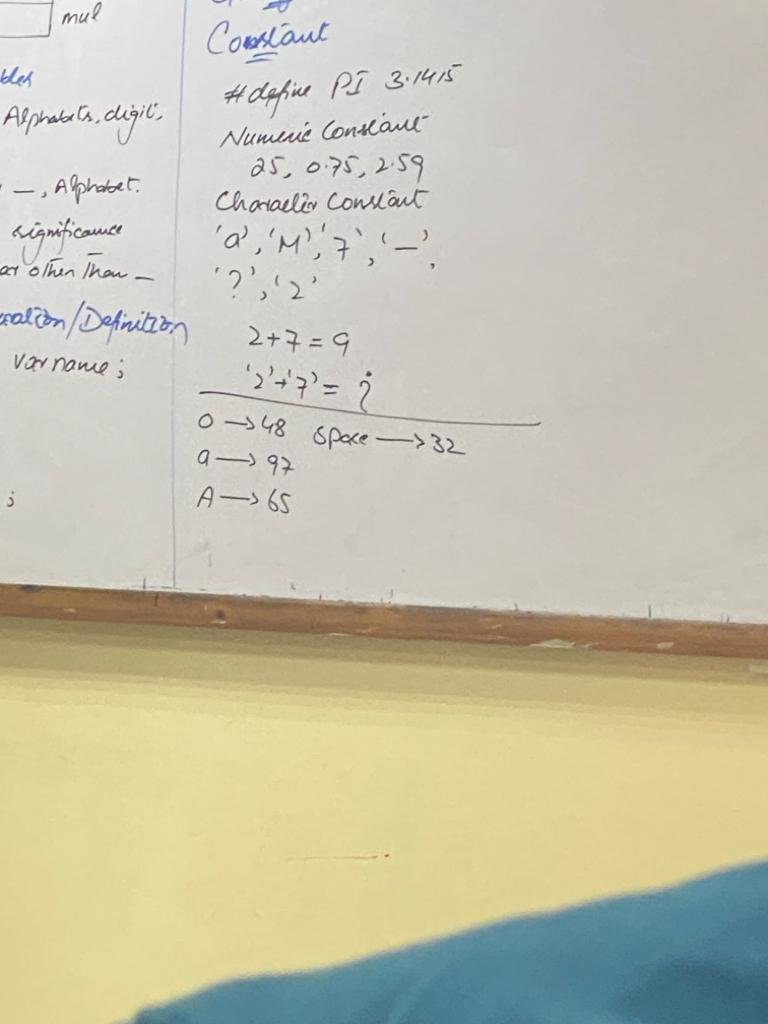 mul
Alphabets, digit,
—, Alphabet.
significance
other than —
/Definition
var name;
;
Constant
#define PI 3.1415
Numeric Constant
25, 0.75, 2.59
Character Constant
'a', 'M', '7', '—',
'?', '2'
2+7=9
'2'+'7'= ?
0 → 48 space → 32
a → 97
A → 65